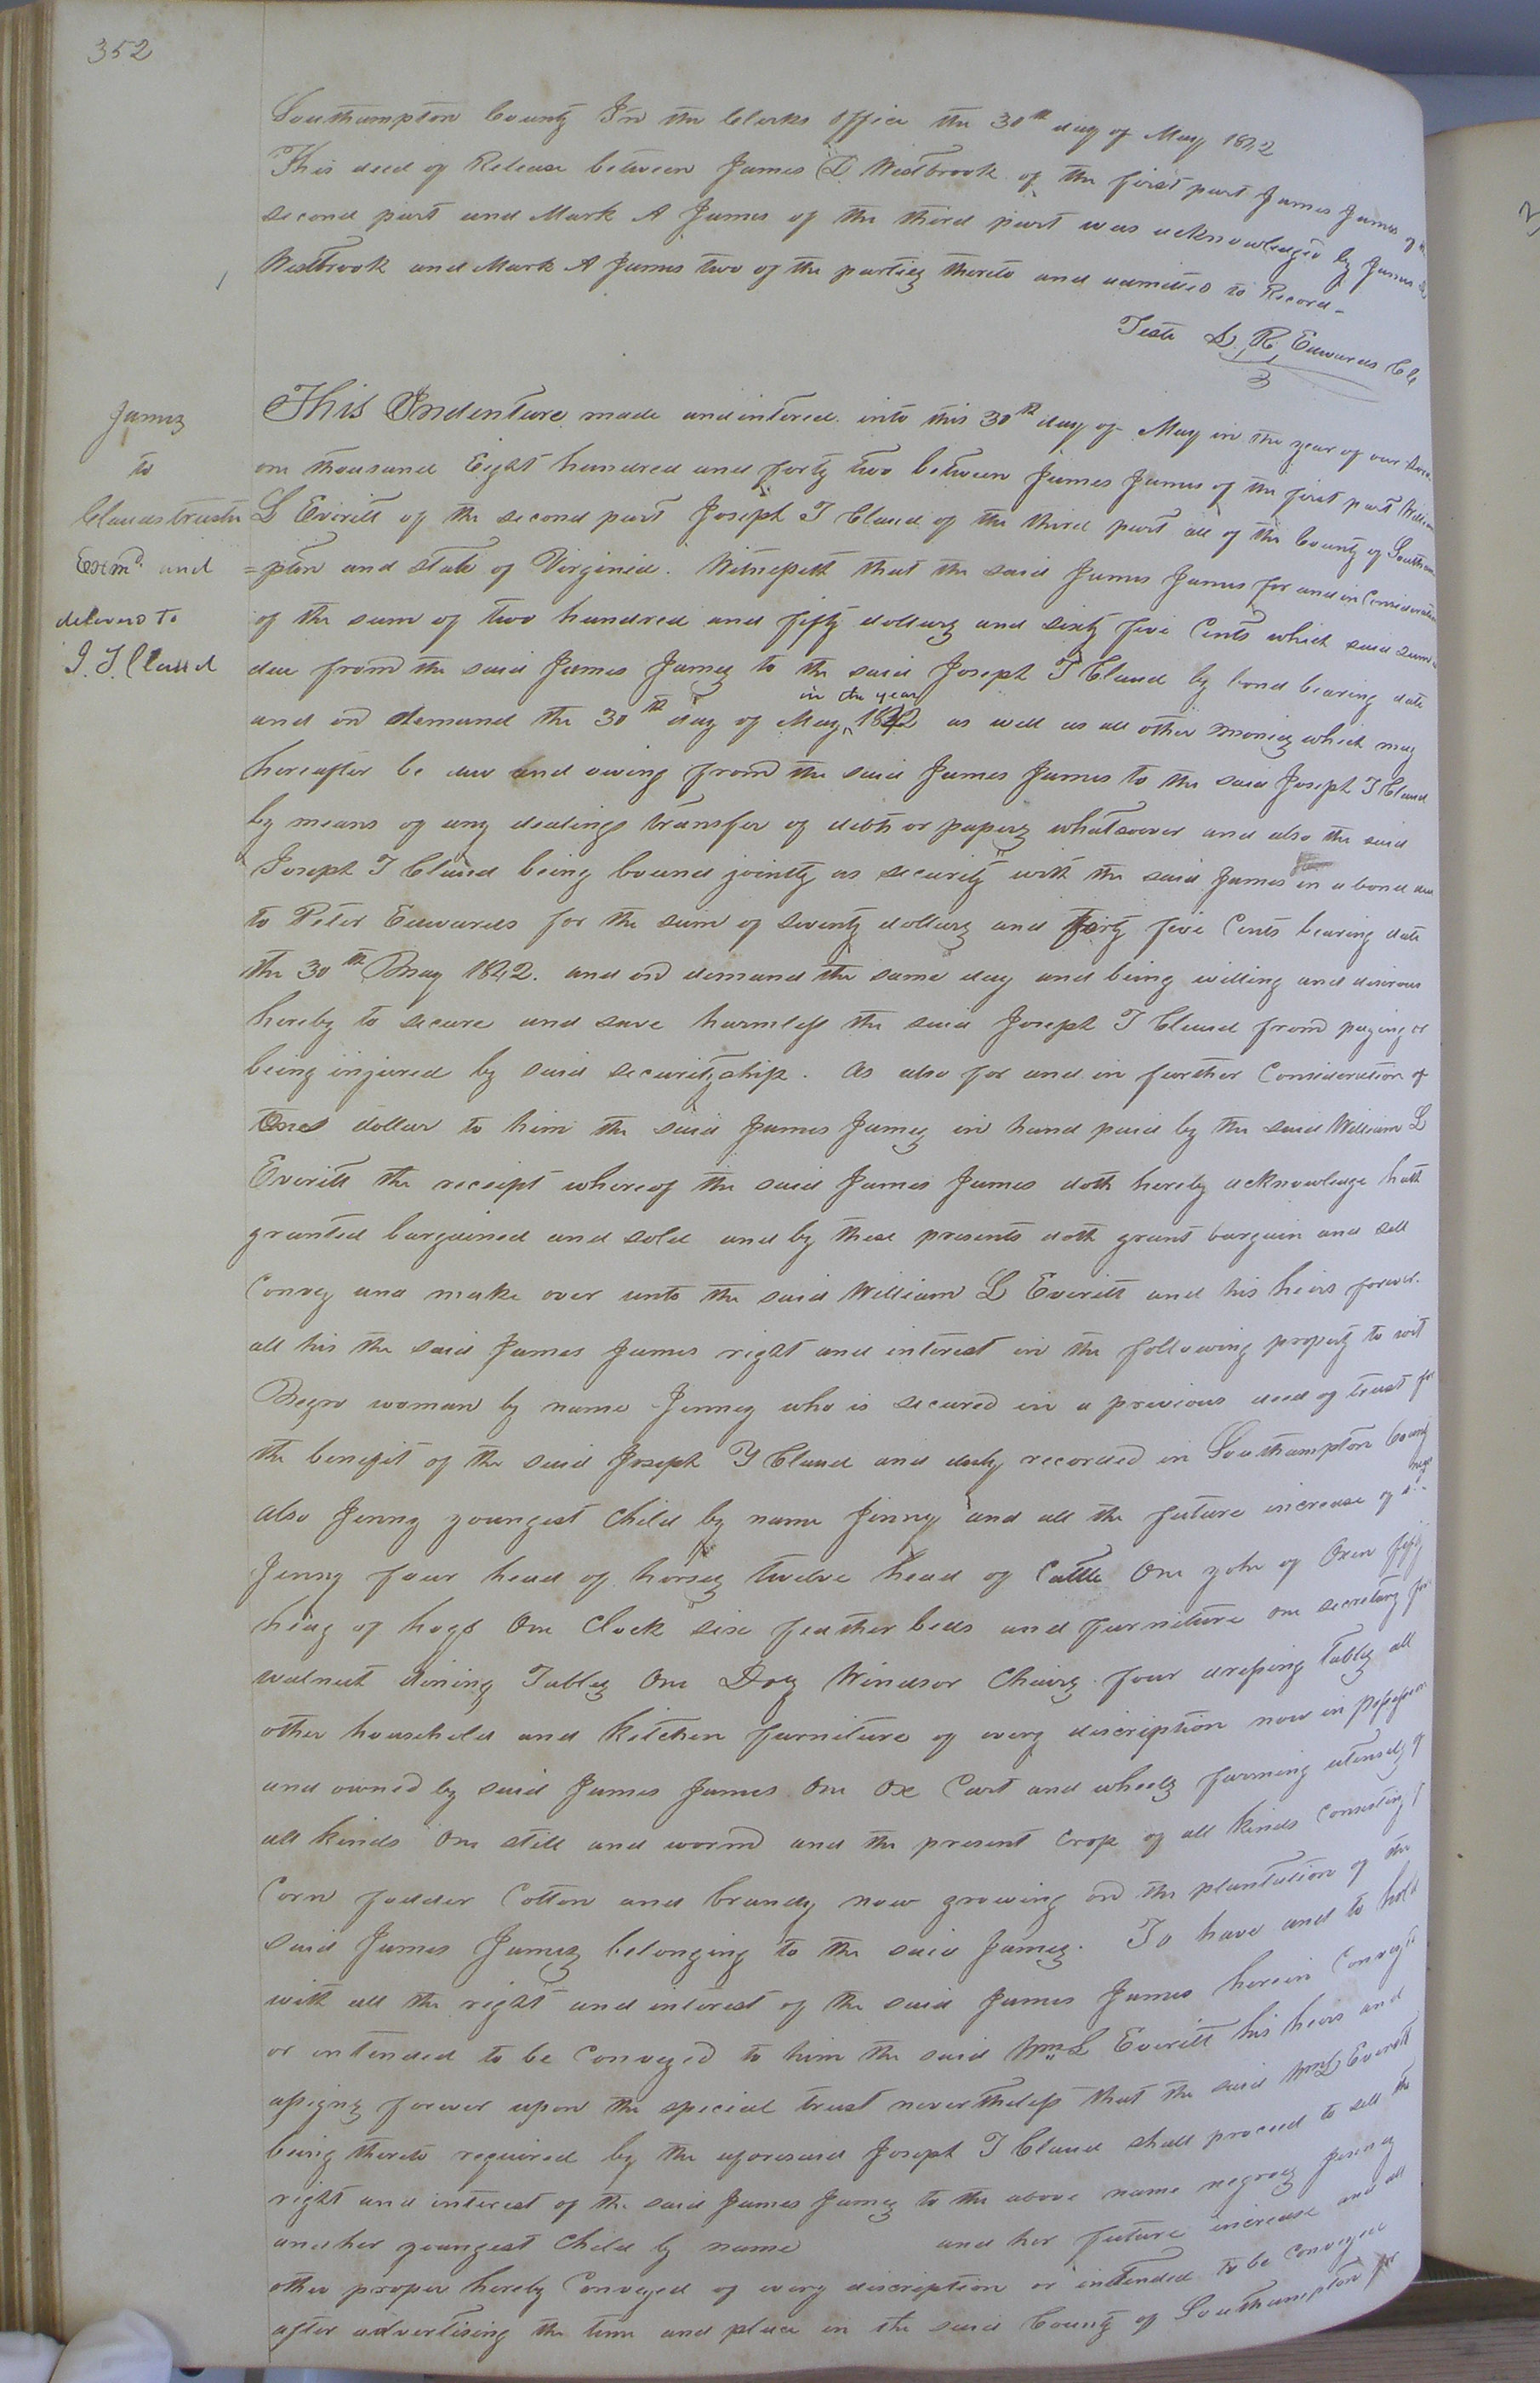 352
Southampton County In the Clerks office the 30th day of May 1842
This deed of Release between James D Westbrook of the first part James James of the
second part and Mark A James of the third part was acknowledged by James D
Westbrook and Mark A James two of the parties thereto and admitted to Record-
Teste L. R. Edwards Clk
James
to
Clauds trustee
Exmd and
delivered to
J. T. Claud
This Indenture made and intered into this 30th day of May in the year of our Lord
one thousand Eight hundred and forty two between James James of the first part William
L Everitt of the second part Joseph T Claud of the third part all of the County of Southam
=pton and state of Virginia. Witnesseth that the said James James for and in Consideration
of the sum of two hundred and fifty dollars and sixty five Cents which said sum is
due from the said James James to the said Joseph T Claud by bond bearing date
and on demand the 30th day of May in the year 1842 as well as all other monies which may
hereafter be due and owing from the said James James to the said Joseph T Claud
by means of any dealings transfer of debts or papers whatsoever and also the said
Joseph T Claud being bound jointly as security with the said James in a bond due
to Peter Edwards for the sum of seventy dollars and forty five Cents bearing date
the 30th May 1842. and on demand the same day and being willing and desirous
hereby to secure and save harmless the said Joseph T Claud from paying or
being injured by said securityship. As also for and in further Consideration of
One dollar to him the said James James in hand paid by the said William L
Everitt the receipt whereof the said James James doth hereby acknowledge hath
granted bargained and sold and by these presents doth grant bargain and sell
Convey and make over unto the said William L Everitt and his heirs forever.
all his the said James James right and interest in the following property to wit
Negro woman by name Jenney who is secured in a previous deed of trust for
the benefit of the said Joseph T Claud and duly recorded in Southampton County
also Jenny youngest Child by name Jinny and all the future increase of sd. negro
Jenny four head of horses twelve head of Cattle One yoke of Oxen fifty
heag of hogs One Clock six feather beds and furniture one secretary four
walnut dining Tables One Doz Windsor Chairs four dressing Tables all
other household and kitchen furniture of every discription now in possession
and owned by said James James One Ox Cart and wheels farming utensels of
all kinds One still and worm and the present Crop of all kinds Consisting of
Corn fodder Cotton and brandy now growing on the plantation of the
said James James belonging to the said James. To have and to hold
with all the right and interest of the said James James herein Conveyed
or intended to be Conveyed to him the said Wm L Everitt his heirs and
assigns forever upon the special trust nevertheless that the said Wm L Everitt
being thereto required by the aforesaid Joseph T Claud shall proceed to sell the
right and interest of the said James James to the above name negroes Jenny
and her youngest Child by name and her future increase and all
other proper hereby Conveyed of every discription or intended to be Conveyed
after advertising the time and place in the said County of Southampton for